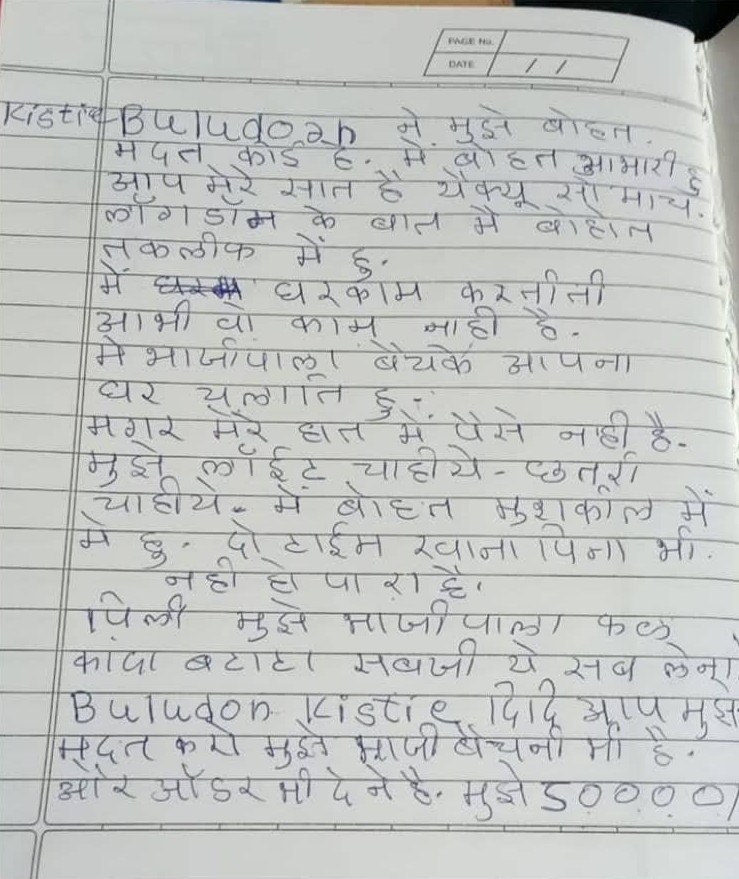 PAGE No.
DATE / /
Kistie Buludon ने मुझे बोहत.
मदत काई है. मे बोहत आभारी हु
आप मेरे सात है थैंक्यू सो माच.
लॉगडॉम के बात मे बोहोत
तकलीक में हु.
में घरकाम करतीती
आभी वो काम नाही है.
मे भाजीपाला बैचके आपना
घर चलाति हु.
मगर मेरे हात में पैसे नही है.
मुझे लाईट चाहीये - छतरी
चाहीये. मे बोहत मुशकील में
मे हु. दो टाईम खाना पिना भी.
नही हो पा रा है.
मुझे भाजीपाला फळ
कादा बटाटा सबजी ये सब लेना
Buludon Kistie दिदि आप मुझे
मदत करो मुझे भाजी बेचनी भी है.
और ऑडर भी देने है. मुझे 50000/